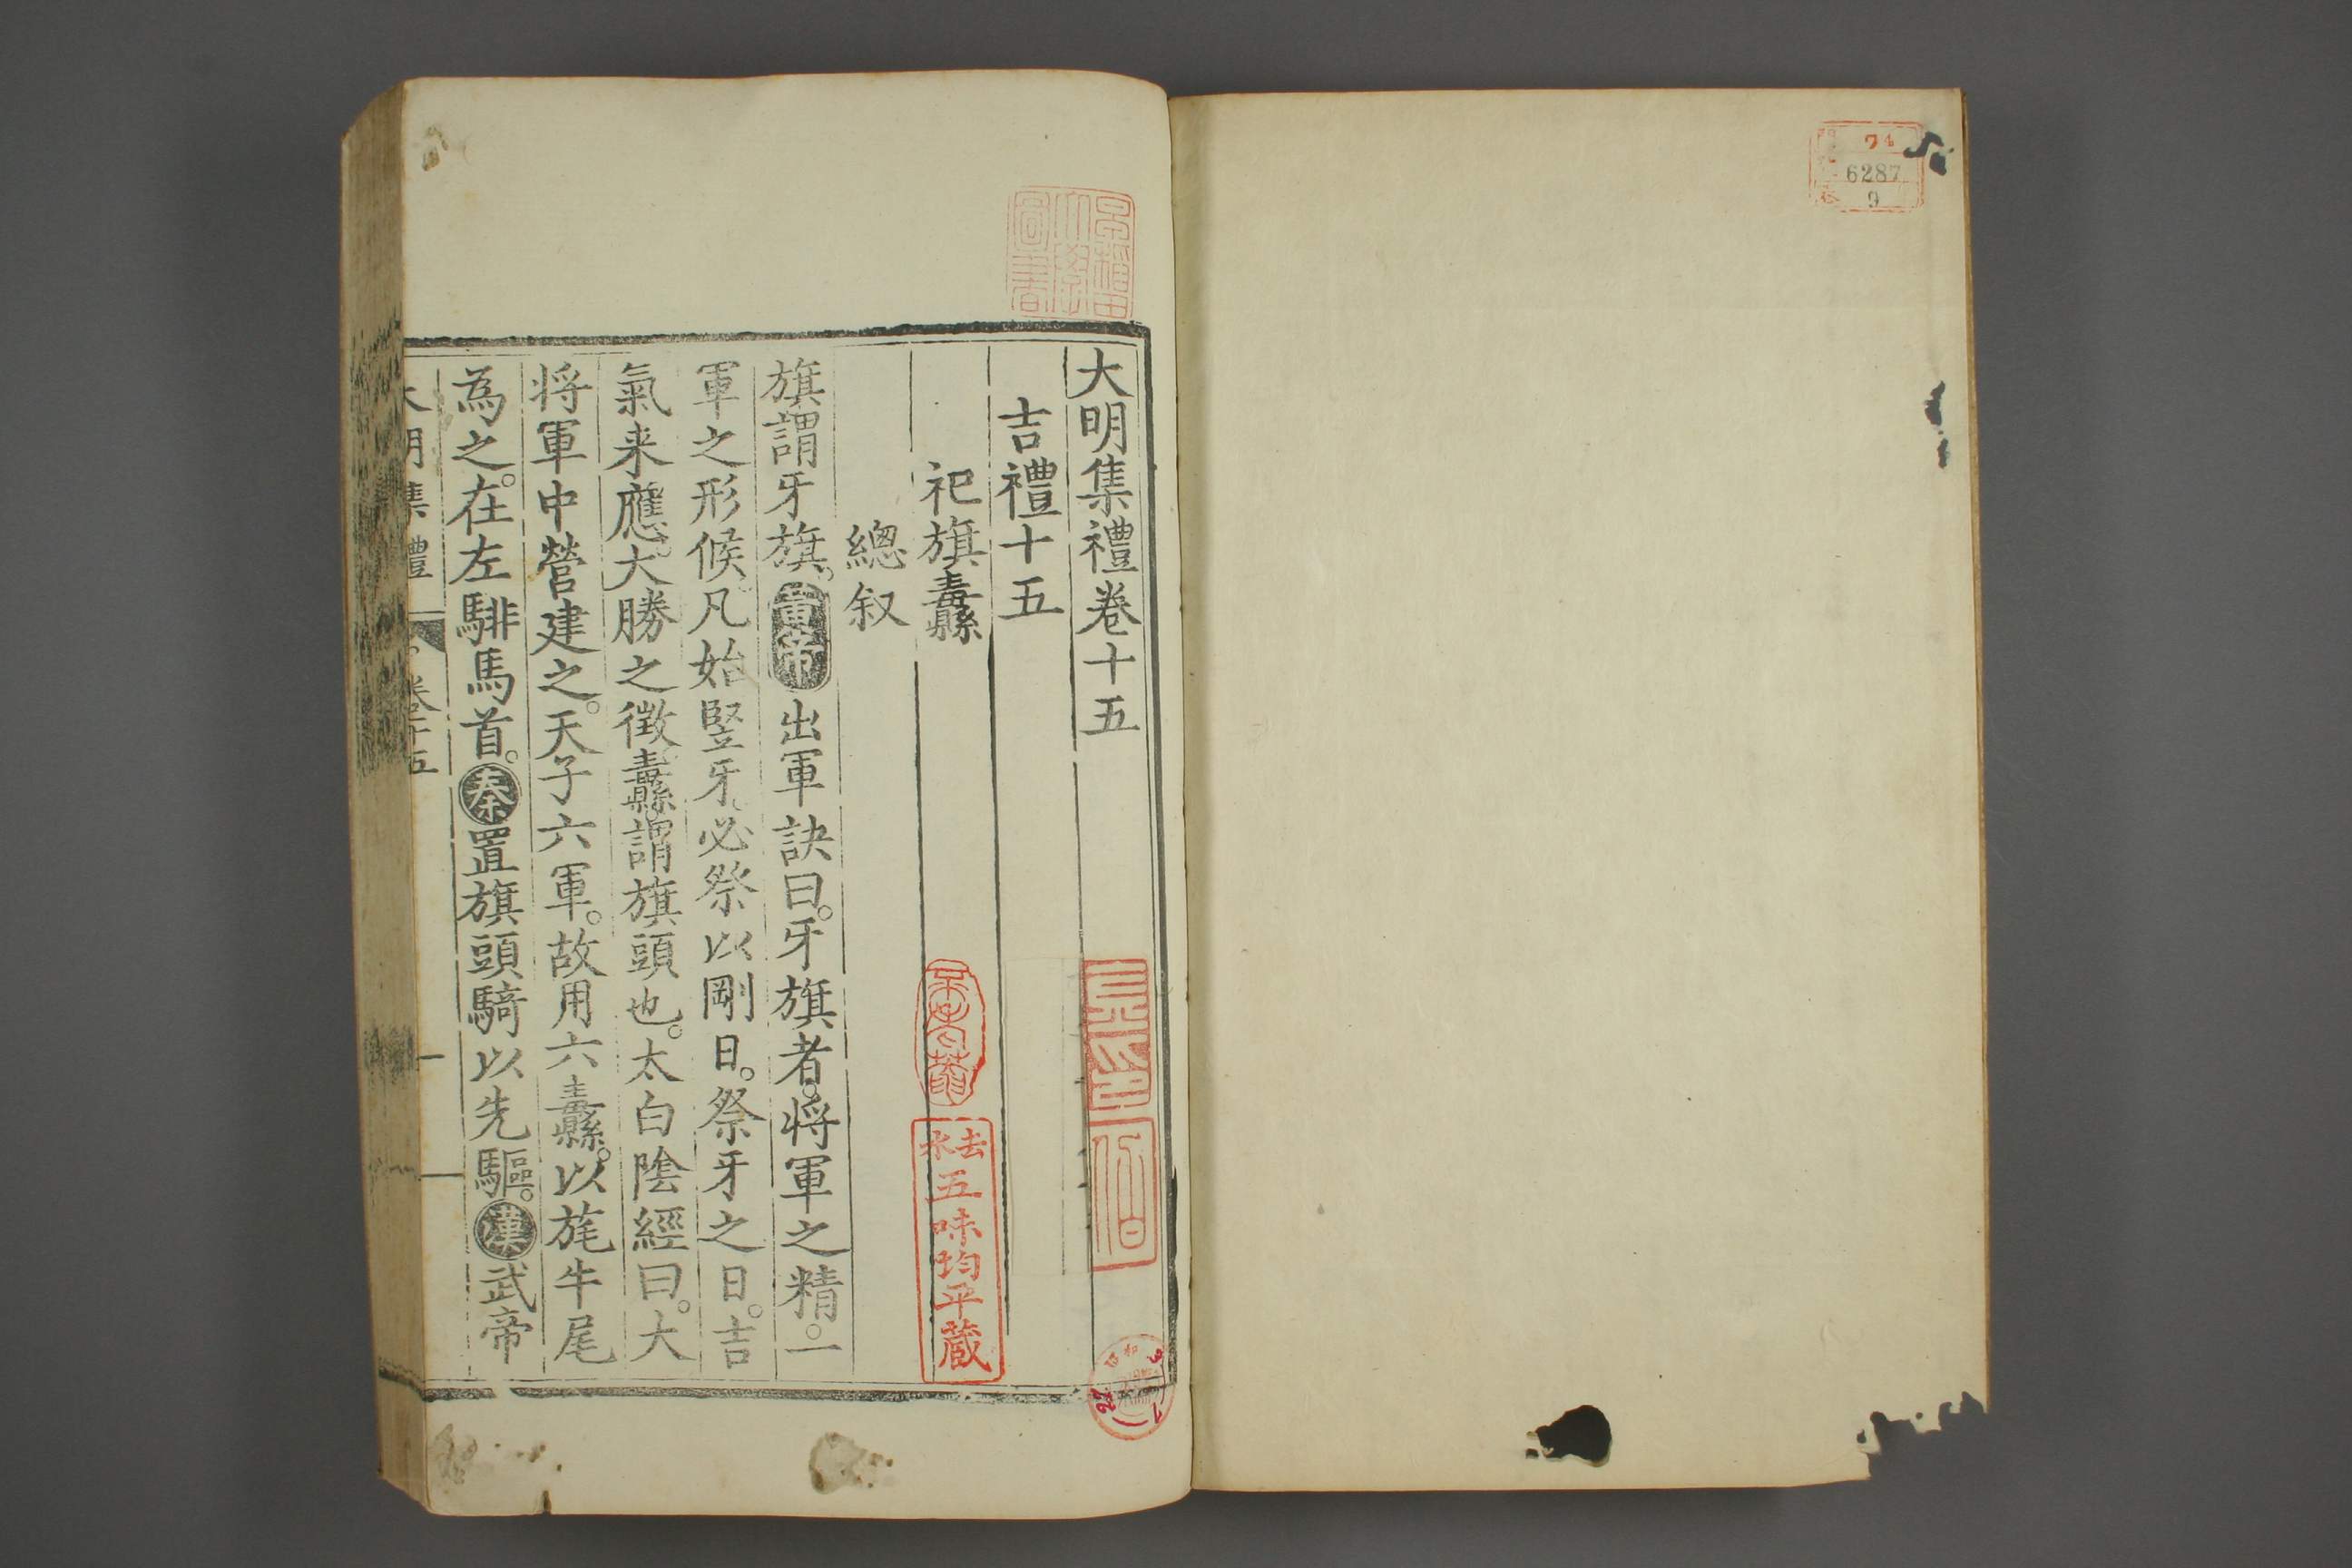 74
6287
9
早稲田大學圖書
大明集禮卷十五
吉禮十五
祀旗纛
總叙
旗謂牙旗。黃帝出軍訣曰。牙旗者。將軍之精。一
軍之形候。凡始竪牙。必祭以剛日。祭牙之日。吉
氣来應。大勝之徵。纛。謂旗頭也。太白陰經曰。大
将軍中營建之。天子六軍。故用六纛。以旄牛尾
為之。在左騑馬首。秦置旗頭騎以先驅。漢武帝
大明集禮 卷十五
去水
五味均平藏